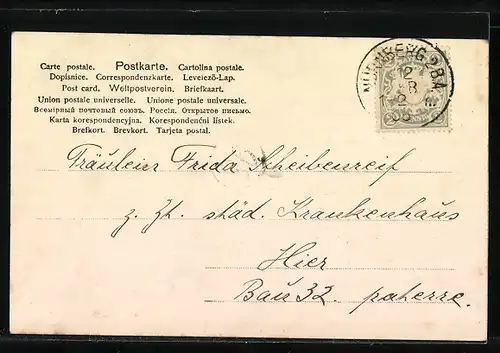 Carte postale. Postkarte. Cartolina postale.
Dopisnice. Correspondenzkarte. Levelező-Lap.
Post card. Weltpostverein. Briefkaart.
Union postale universelle. Unione postale universale.
Всемірный почтовый союзъ. Россія. Открытое письмо.
Karta korespondencyjna. Korespondenční lístek.
Brefkort. Brevkort. Tarjeta postal.
NÜRNBERG 2 B.A.
12
Fräulein Frida Scheibenreif
z. Zt. städ. Krankenhaus
Hier
Bau 32. paterre.